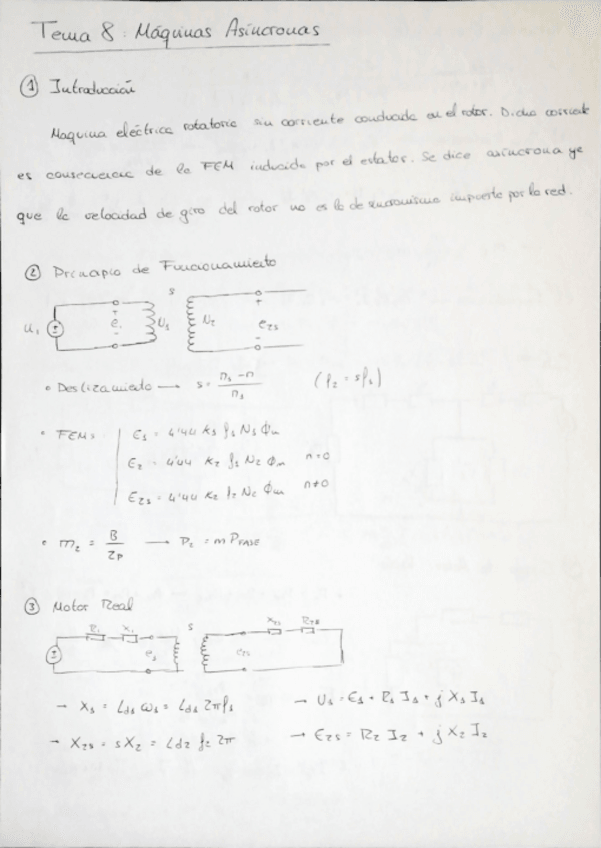 Tema 8: Máquinas Asíncronas
① Introducción
Maquina eléctrica rotatoria sin corriente conducida en el rotor. Dicha corriente
es consecuencia de la FEM inducida por el estator. Se dice asíncrona ya
que la velocidad de giro del rotor no es la de sincronismo impuesta por la red.
② Principio de Funcionamiento
s
U₁ + e₁ - N₁ N₂ + e₂s -
• Deslizamiento → s = (n₁ - n) / n₁ (f₂ = sf₁)
• FEMs
E₁ = 4'44 k₁ f₁ N₁ Φm
E₂ = 4'44 k₂ f₁ N₂ Φm n=0
E₂s = 4'44 k₂ f₂ N₂ Φm n≠0
• m₂ = B / 2p → P₂ = m PFASE
③ Motor Real
R₁ X₁ s X₂s R₂
e₁ e₂s
→ X₁ = Ld₁ ω₁ = Ld₁ 2πf₁ → U₁ = E₁ + R₁ I₁ + j X₁ I₁
→ X₂s = sX₂ = Ld₂ f₂ 2π → E₂s = R₂ I₂ + j X₂ I₂